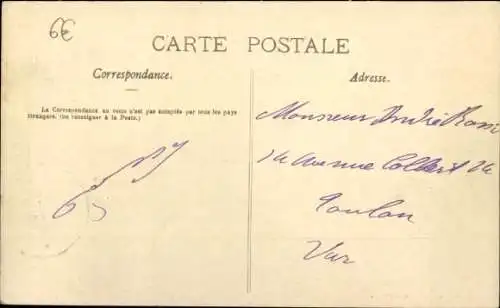 6€
CARTE POSTALE
Correspondance.
La Correspondance au verso n'est pas acceptée par tous les pays
étrangers. (Se renseigner à la Poste.)
Adresse.
Monsieur André
14 Avenue Colbert 14
Toulon
Var